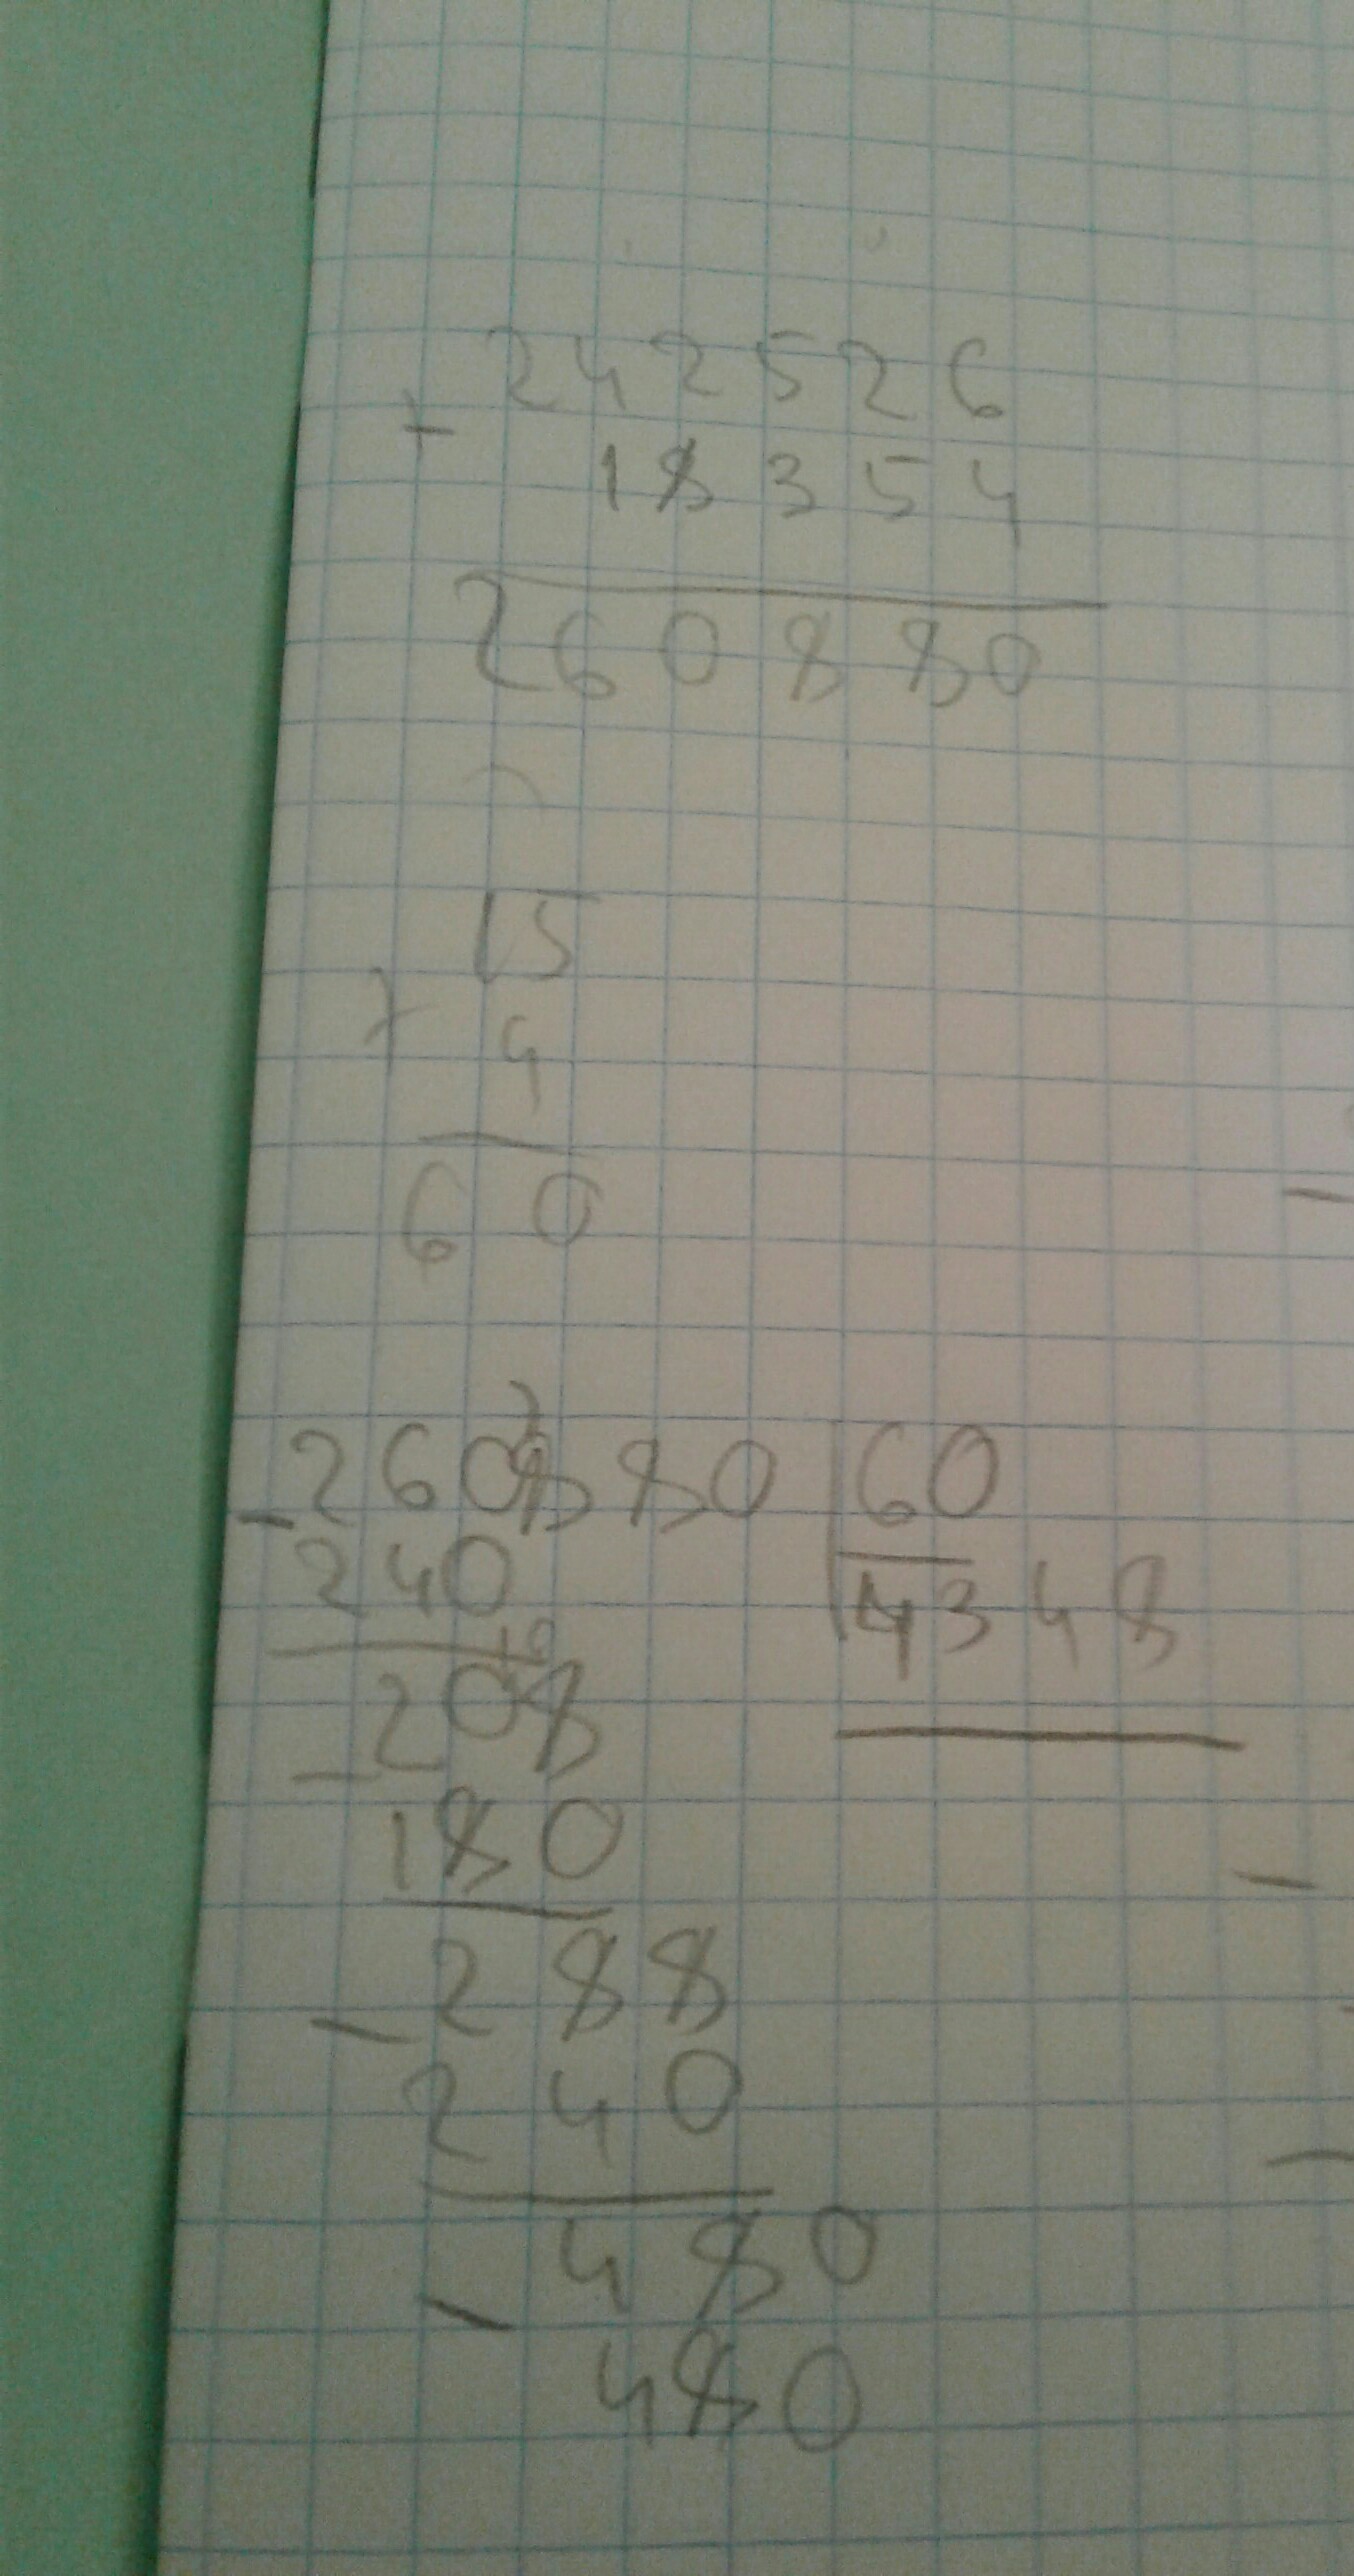 242526
+
18354
260880
15
×
4
60
260880 60
-
240 4348
208
-
180
288
-
240
480
-
480